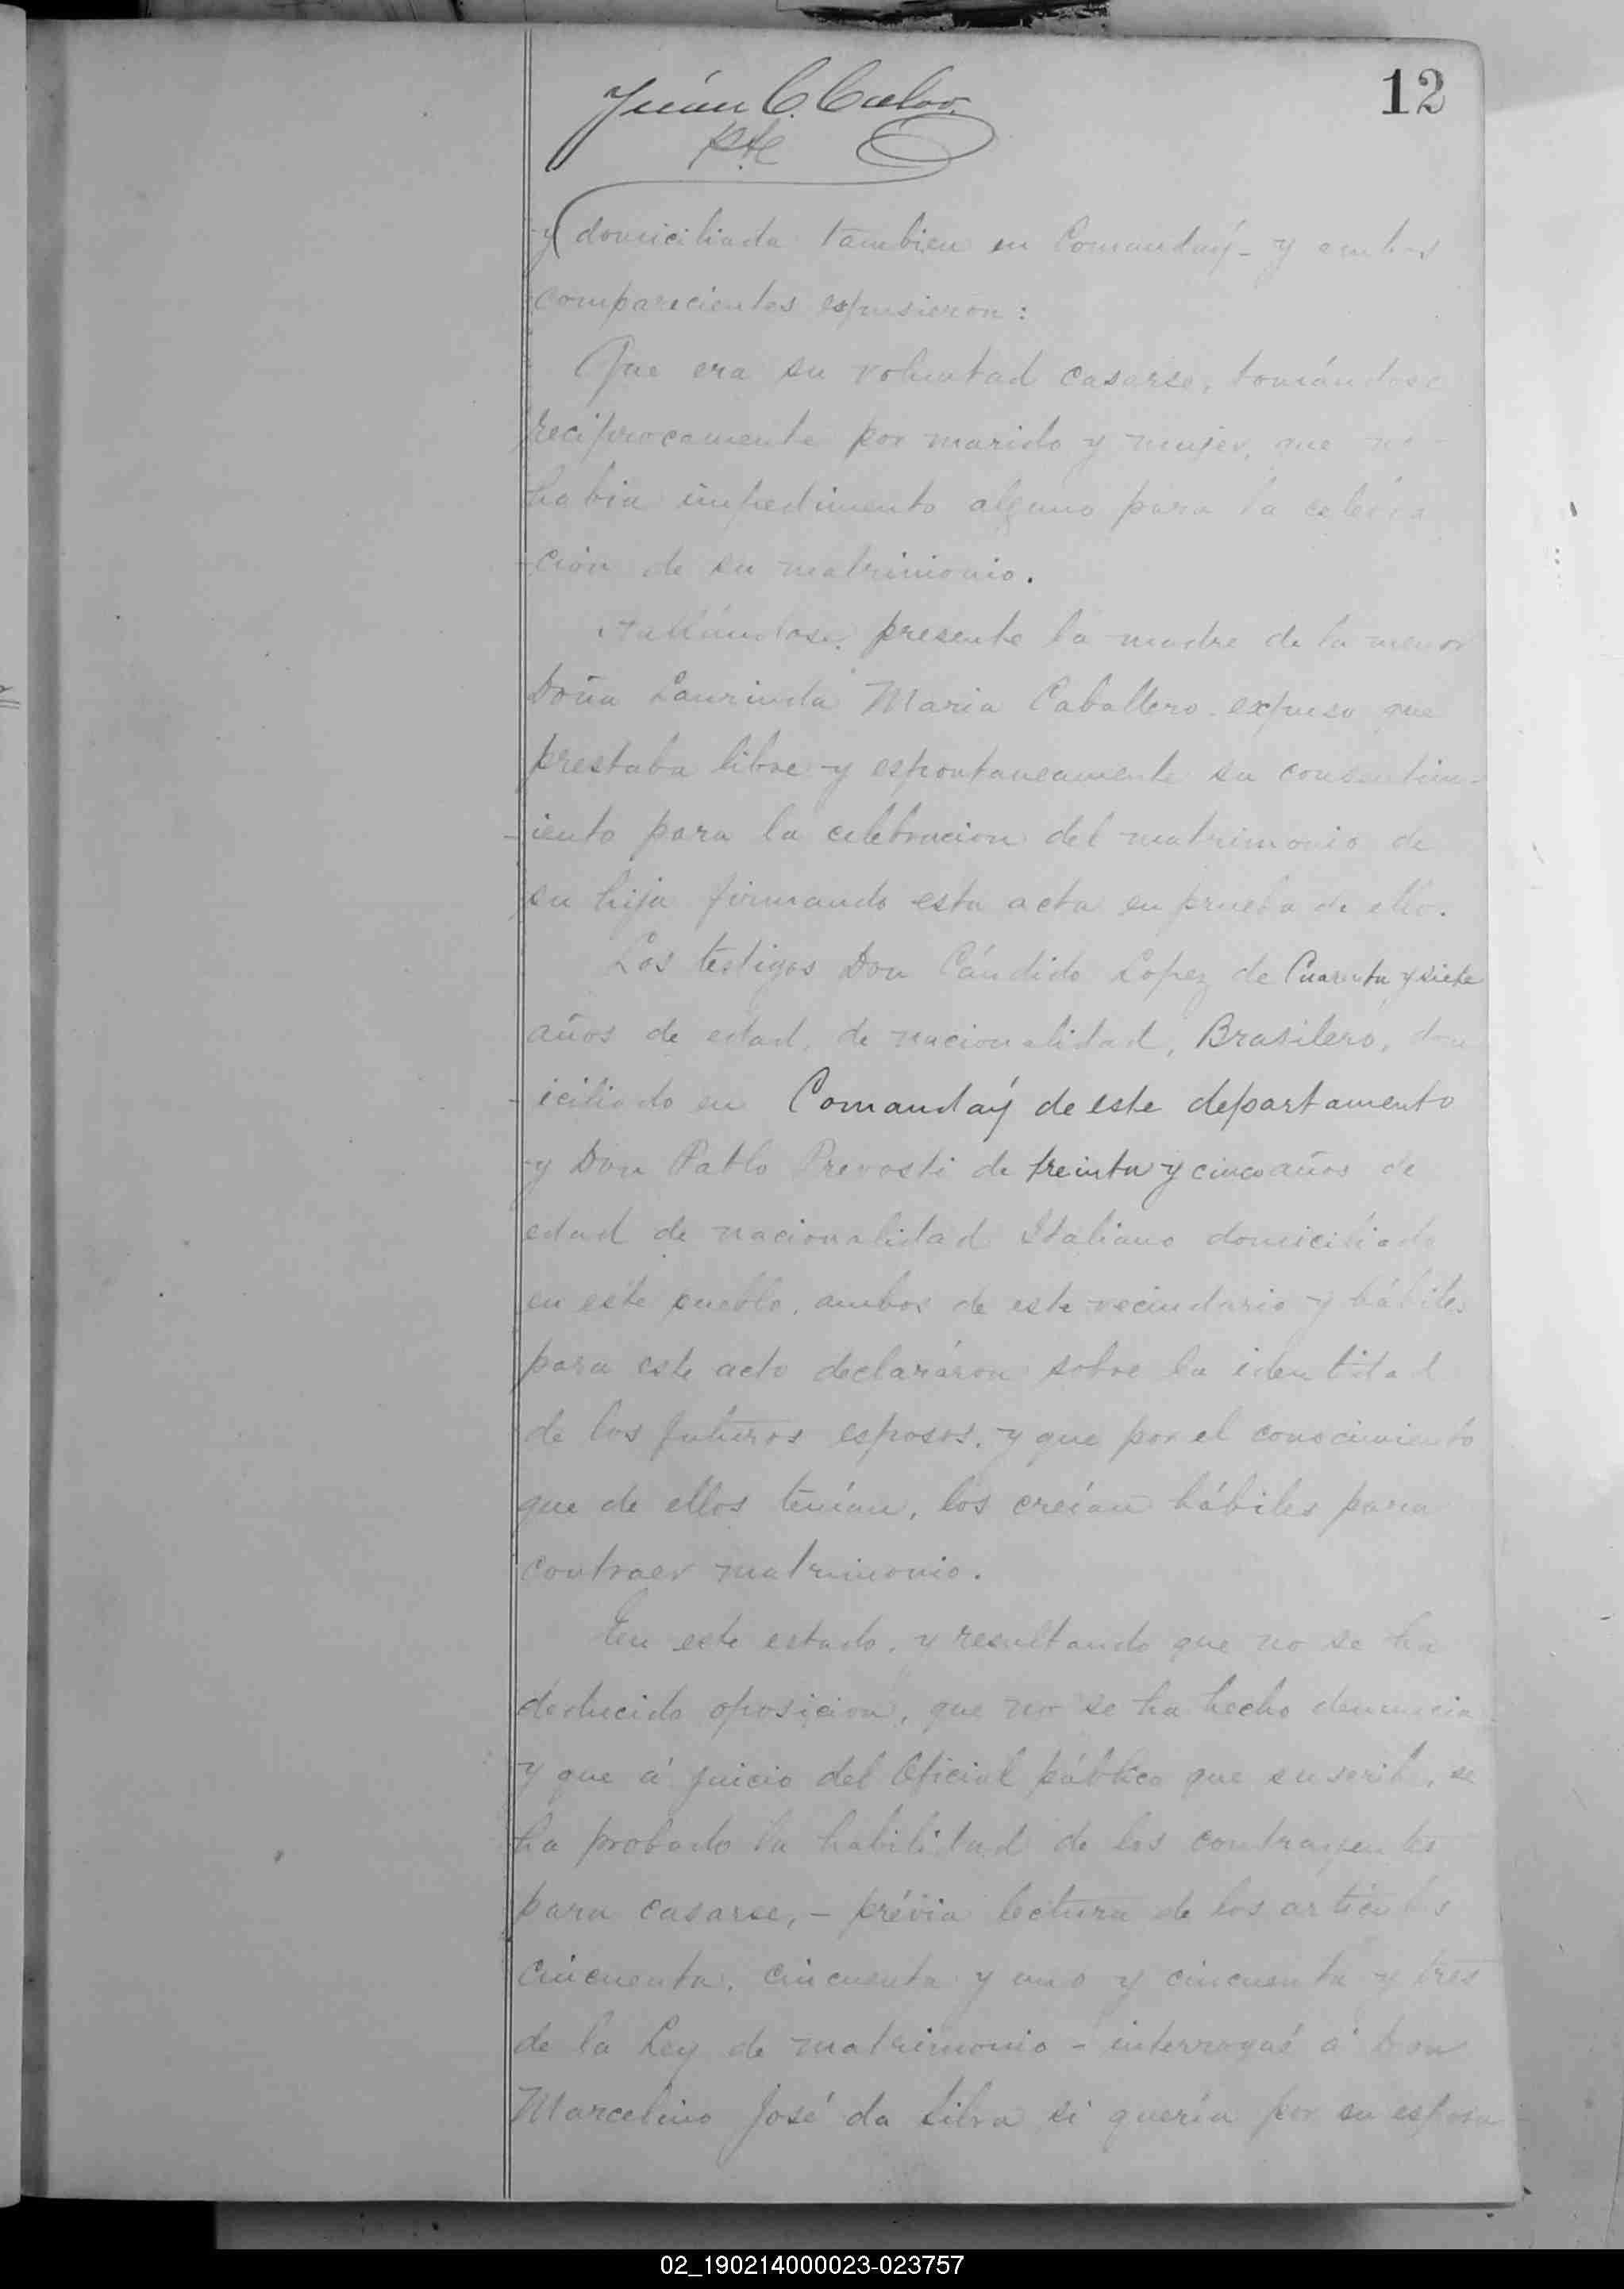 12
Juan C. Calvo
y domiciliada tambien en Comandaý - y ambos
comparecientes espusieron:
Que era su voluntad casarse, tomándose
reciprocamente por marido y mujer, que no
habia impedimento alguno para la celebra
-ción de su matrimonio.
Hallándose presente la madre de la menor
Doña Laurinda Maria Caballero expuso que
prestaba libre y espontaneamente su consentim-
-iento para la celebracion del matrimonio de
su hija firmando esta acta en prueba de ello.
Los testigos Don Cándido Lopez de Cuarenta y siete
años de edad, de nacionalidad, Brasilero, dom
-iciliado en Comandaý de este departamento
y Don Pablo Prevosti de treinta y cinco años de
edad de nacionalidad Italiano domiciliado
en este pueblo, ambos de este vecindario y hábiles
para este acto declaráron sobre la identidad
de los futuros esposos, y que por el conocimiento
que de ellos tenían, los creían hábiles para
contraer matrimonio.
En este estado, y resultando que no se ha
deducido oposicion, que no se ha hecho denuncia
y que á juicio del Oficial público que suscribe, se
ha probado la habilidad de los contrayentes
para casarse, - prévia lectura de los artículos
cincuenta, cincuenta y uno y cincuenta y tres
de la Ley de matrimonio - interrogué á Don
Marcelino José da Silva si quería por su esposa
02_190214000023-023757